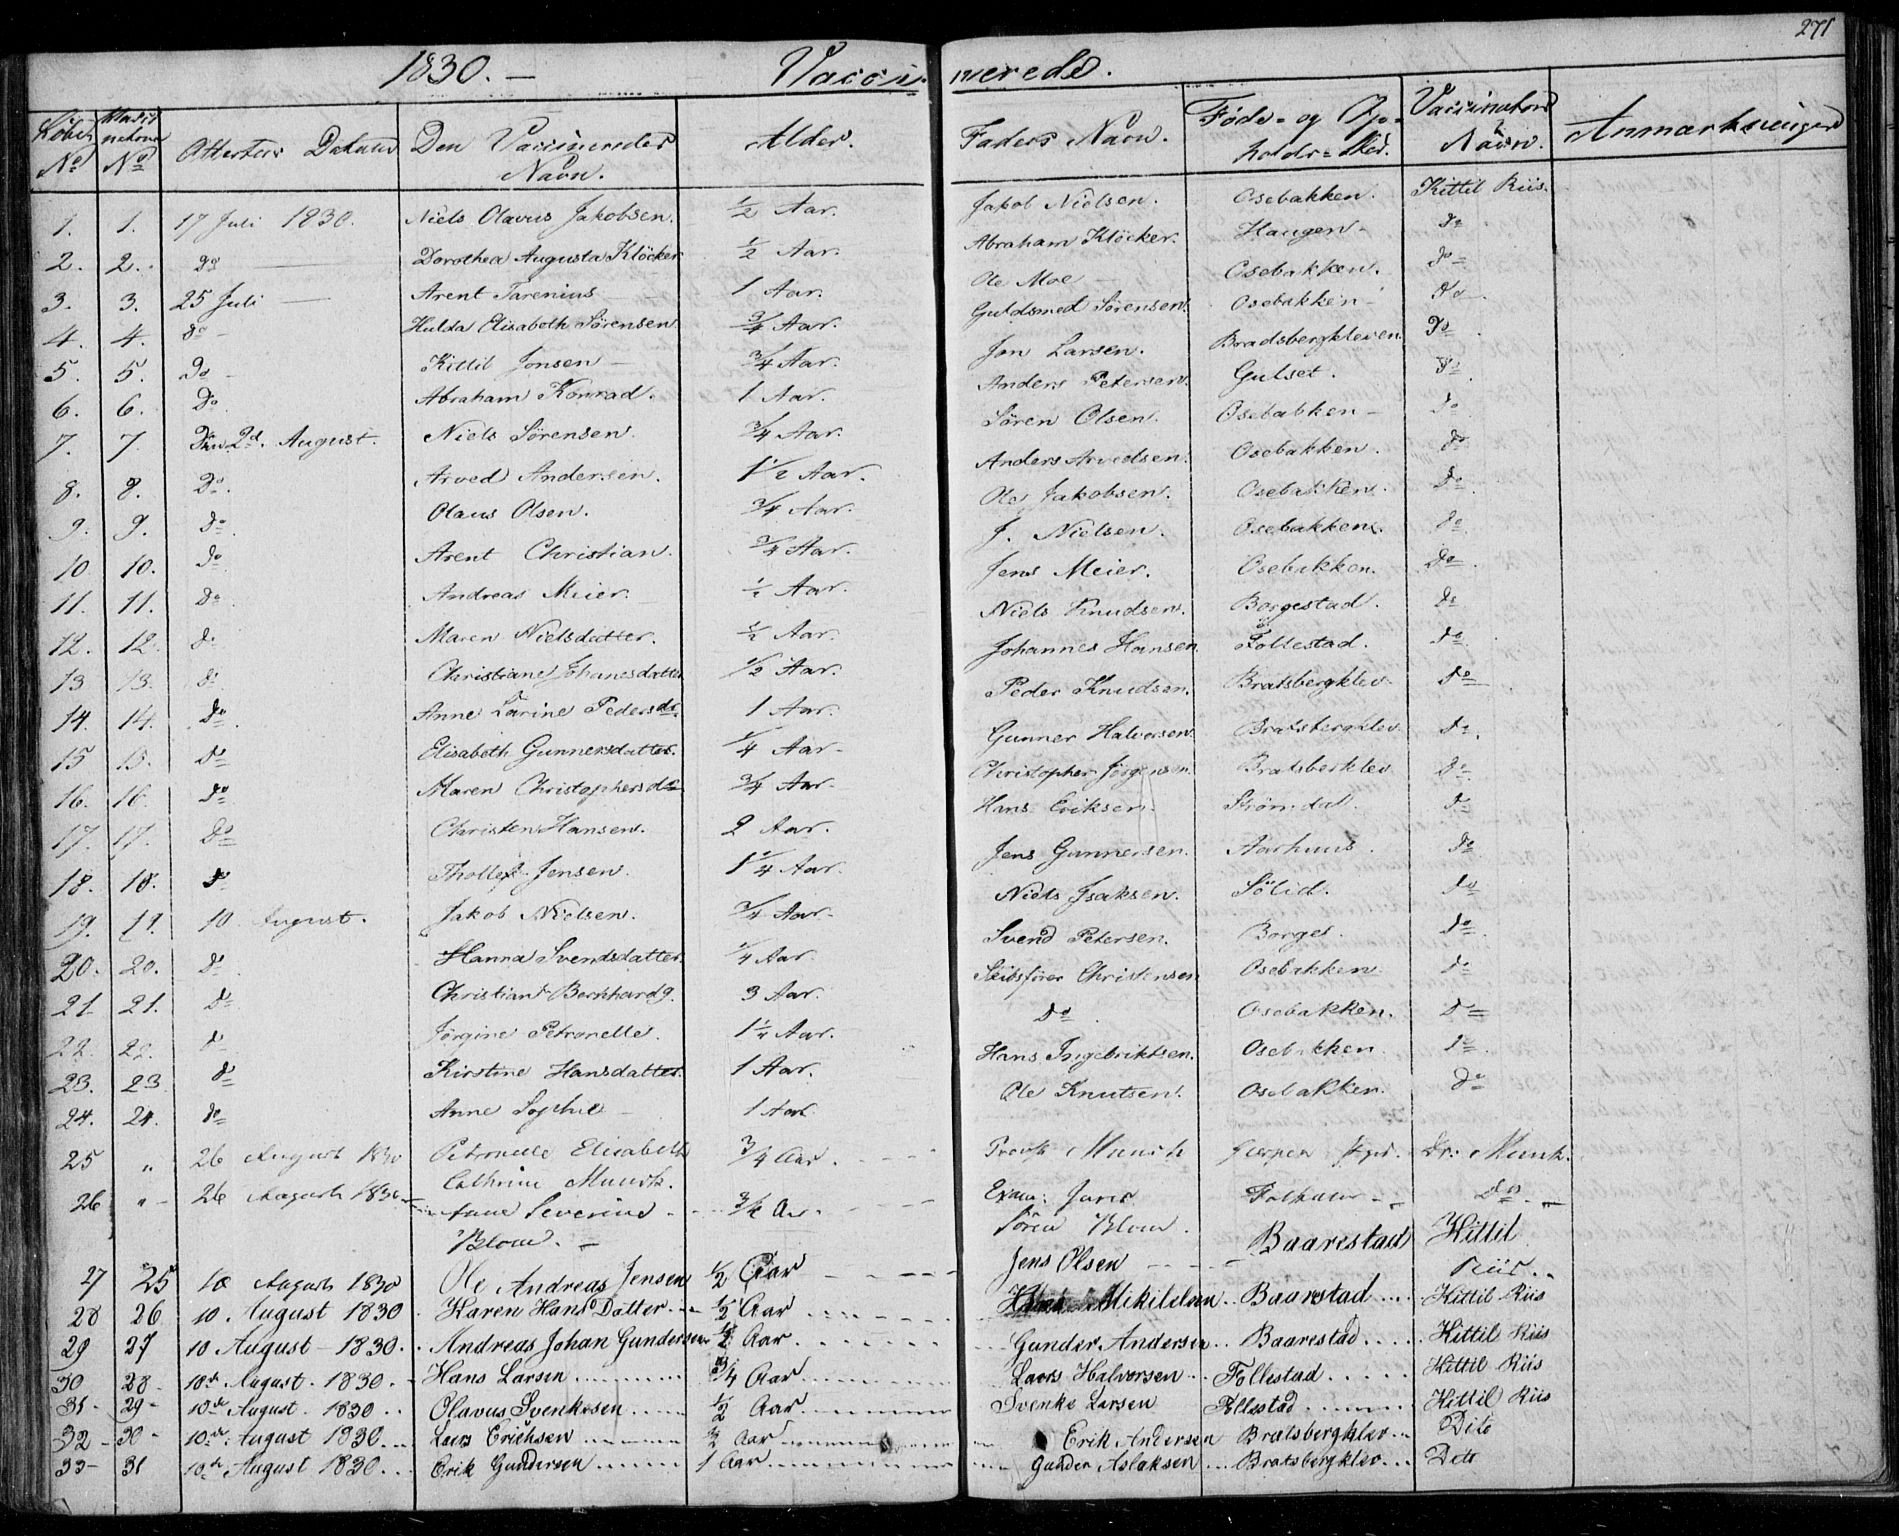 271
1830. — Vaccinerede.
Løbe No | Vaccinatorens No | Attestens Datum | Den Vaccineredes Navn. | Alder. | Faders Navn. | Føde- og Opholds-Sted. | Vaccinatorens Navn. | Anmærkninger
1. 1. 17 Juli 1830. Niels Olavus Jakobsen. ½ Aar. Jakob Nielsen. Osebakken. Kittil Riis.
2. 2. Do Dorothea Augusta Klöcker ½ Aar. Abraham Klöcker. Haugen - do
3. 3. 25 Juli — Arent Tarenius 1 Aar. Ole Moe Osebakken. do
4. 4. do - Hulda Elisabeth Sörensen. ¾ Aar. Guldsmed Sörensen. Osebakken - do
5. 5. Do - Kittil Jonsen — ¾ Aar. Jon Larsen. Bradsbergkleven. Do
6. 6. Do Abraham Konrad. 1 Aar. Anders Petersen. Gulset. do
7. 7. Den 2d. August Niels Sörensen. ¾ Aar. Sören Olsen. Osebakken - do
8. 8. Do. Arved Andersen. 1½ Aar. Anders Arvedsen. Osebakken. do
9. 9. do Olaus Olsen. ¾ Aar. Ole Jakobsen. Osebakken. do.
10 10. do Arent Christian. ¾ Aar. J. Nielsen. Osebakken. do
11. 11. do Andreas Meier. Aar. Jens Meier. Osebakken. do
12. 12. do Maren Nielsdatter. ½ Aar. Niels Knudsen. Borgestad. do
13 13. do Christiane Johanesdatter ½ Aar. Johannes Hansen Follestad. do
14. 14. do Anne Larine Pedersdr 1 Aar. Peder Knudsen. Bratsbergklev do
15 15. Do Elisabeth Gunnersdatter. ¼ Aar - Gunner Halvorsen. Bratsbergklev do.
16. 16. do Maren Christophersdr ¾ Aar. Christopher Jörgensen Bratsberklev Do
17. 17. Do Christen Hansen. 2 Aar. Hans Eriksen. Strömdal. do
18. 18. do Thollef Jensen. 1¼ Aar. Jens Gunnersen. Aarhuus. do
19. 19. 10 August. Jakob Nielsen. ¾ Aar. Niels Isaksen. Sölid. do
20. 20. do Hanna Svendsdatter. ¼ Aar. Svend Petersen. Borges. do
21 21. do Christian Bernhard 3 Aar. Skibsförer Christensen Osebakken do
22. 22. do Jörgine Petronelle. 1¼ Aar. Do. Osebakken. do
23. 23. do Kirstine Hansdatter. 1 Aar. Hans Ingebriktsen. Osebakken do.
24. 24. do Anne Sophie 1 Aar. Ole Knutsen. Osebakken. do
25 " 26 August 1830 Petronelle Elisabeth ¾ Aar. Provst Munch Gjerpen Dr: Munk.
Cathrine Munch.
26 " 26 August 1830 Anne Severine ¾ Aar. Exam: Juris do
Blom. — Sören Blom.
27 25 10 August 1830 Ole Andreas Jensen ½ Aar Jens Olsen Baarestad Kittil Riis.
28 26 10. August 1830 Karen Hans Datter ½ Aar Mikkelsen Baarestad Kittil Riis
29 27 10 August - 1830. Andreas Johan Gundersen ½ Aar Gunder Andersen Baarestad Kittil Riis
30 28 10de August. 1830. Hans Larsen ¾ Aar Lars Halvorsen Follestad Kittil Riis
31 29 10de August. 1830 Olavus Svenksen ½ Aar Svenke Larsen Follestad Kittil Riis
32 30 10de August 1830 Lars Erichsen Aar Erik Andersen Bratsbergklev Dito
33 31 10de August 1830 Erik Gundersen 1 Aar Gunder Aslaksen Bratsbergklev Dito